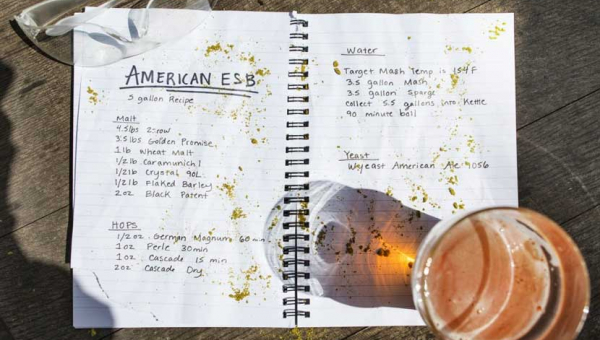 AMERICAN ESB
5 gallon Recipe
Malt
4.5lbs 2-row
3.5lbs Golden Promise
1lb Wheat Malt
1/2lb Caramunich 1
1/2lb Crystal 90L
1/2lb Flaked Barley
2oz Black Patent
HOPS
1/2oz German Magnum 60 min
1oz Perle 30min
1oz Cascade 15 min
2oz Cascade Dry
Water
Target Mash Temp is 154 F
3.5 gallon Mash
3.5 gallon Sparge
collect 5.5 gallons into Kettle
90 minute boil
Yeast
Wyeast American Ale 1056